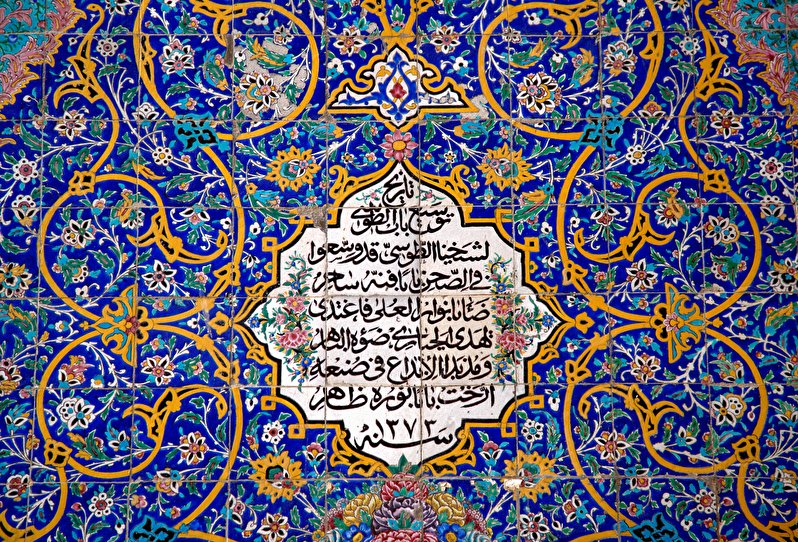 تاريخ
توسيع باب الطوسي
لشيخنا الطوسيّ قد وسعوا
في الصحن بابا فنه ساحر
ضاء بانوار العلى فاغتدى
يهدي الحيارى ضوءه الباهر
ومذ بدا الابداع في صنعه
ارخت بابا نوره ظاهر
سنه ١٣٧٣